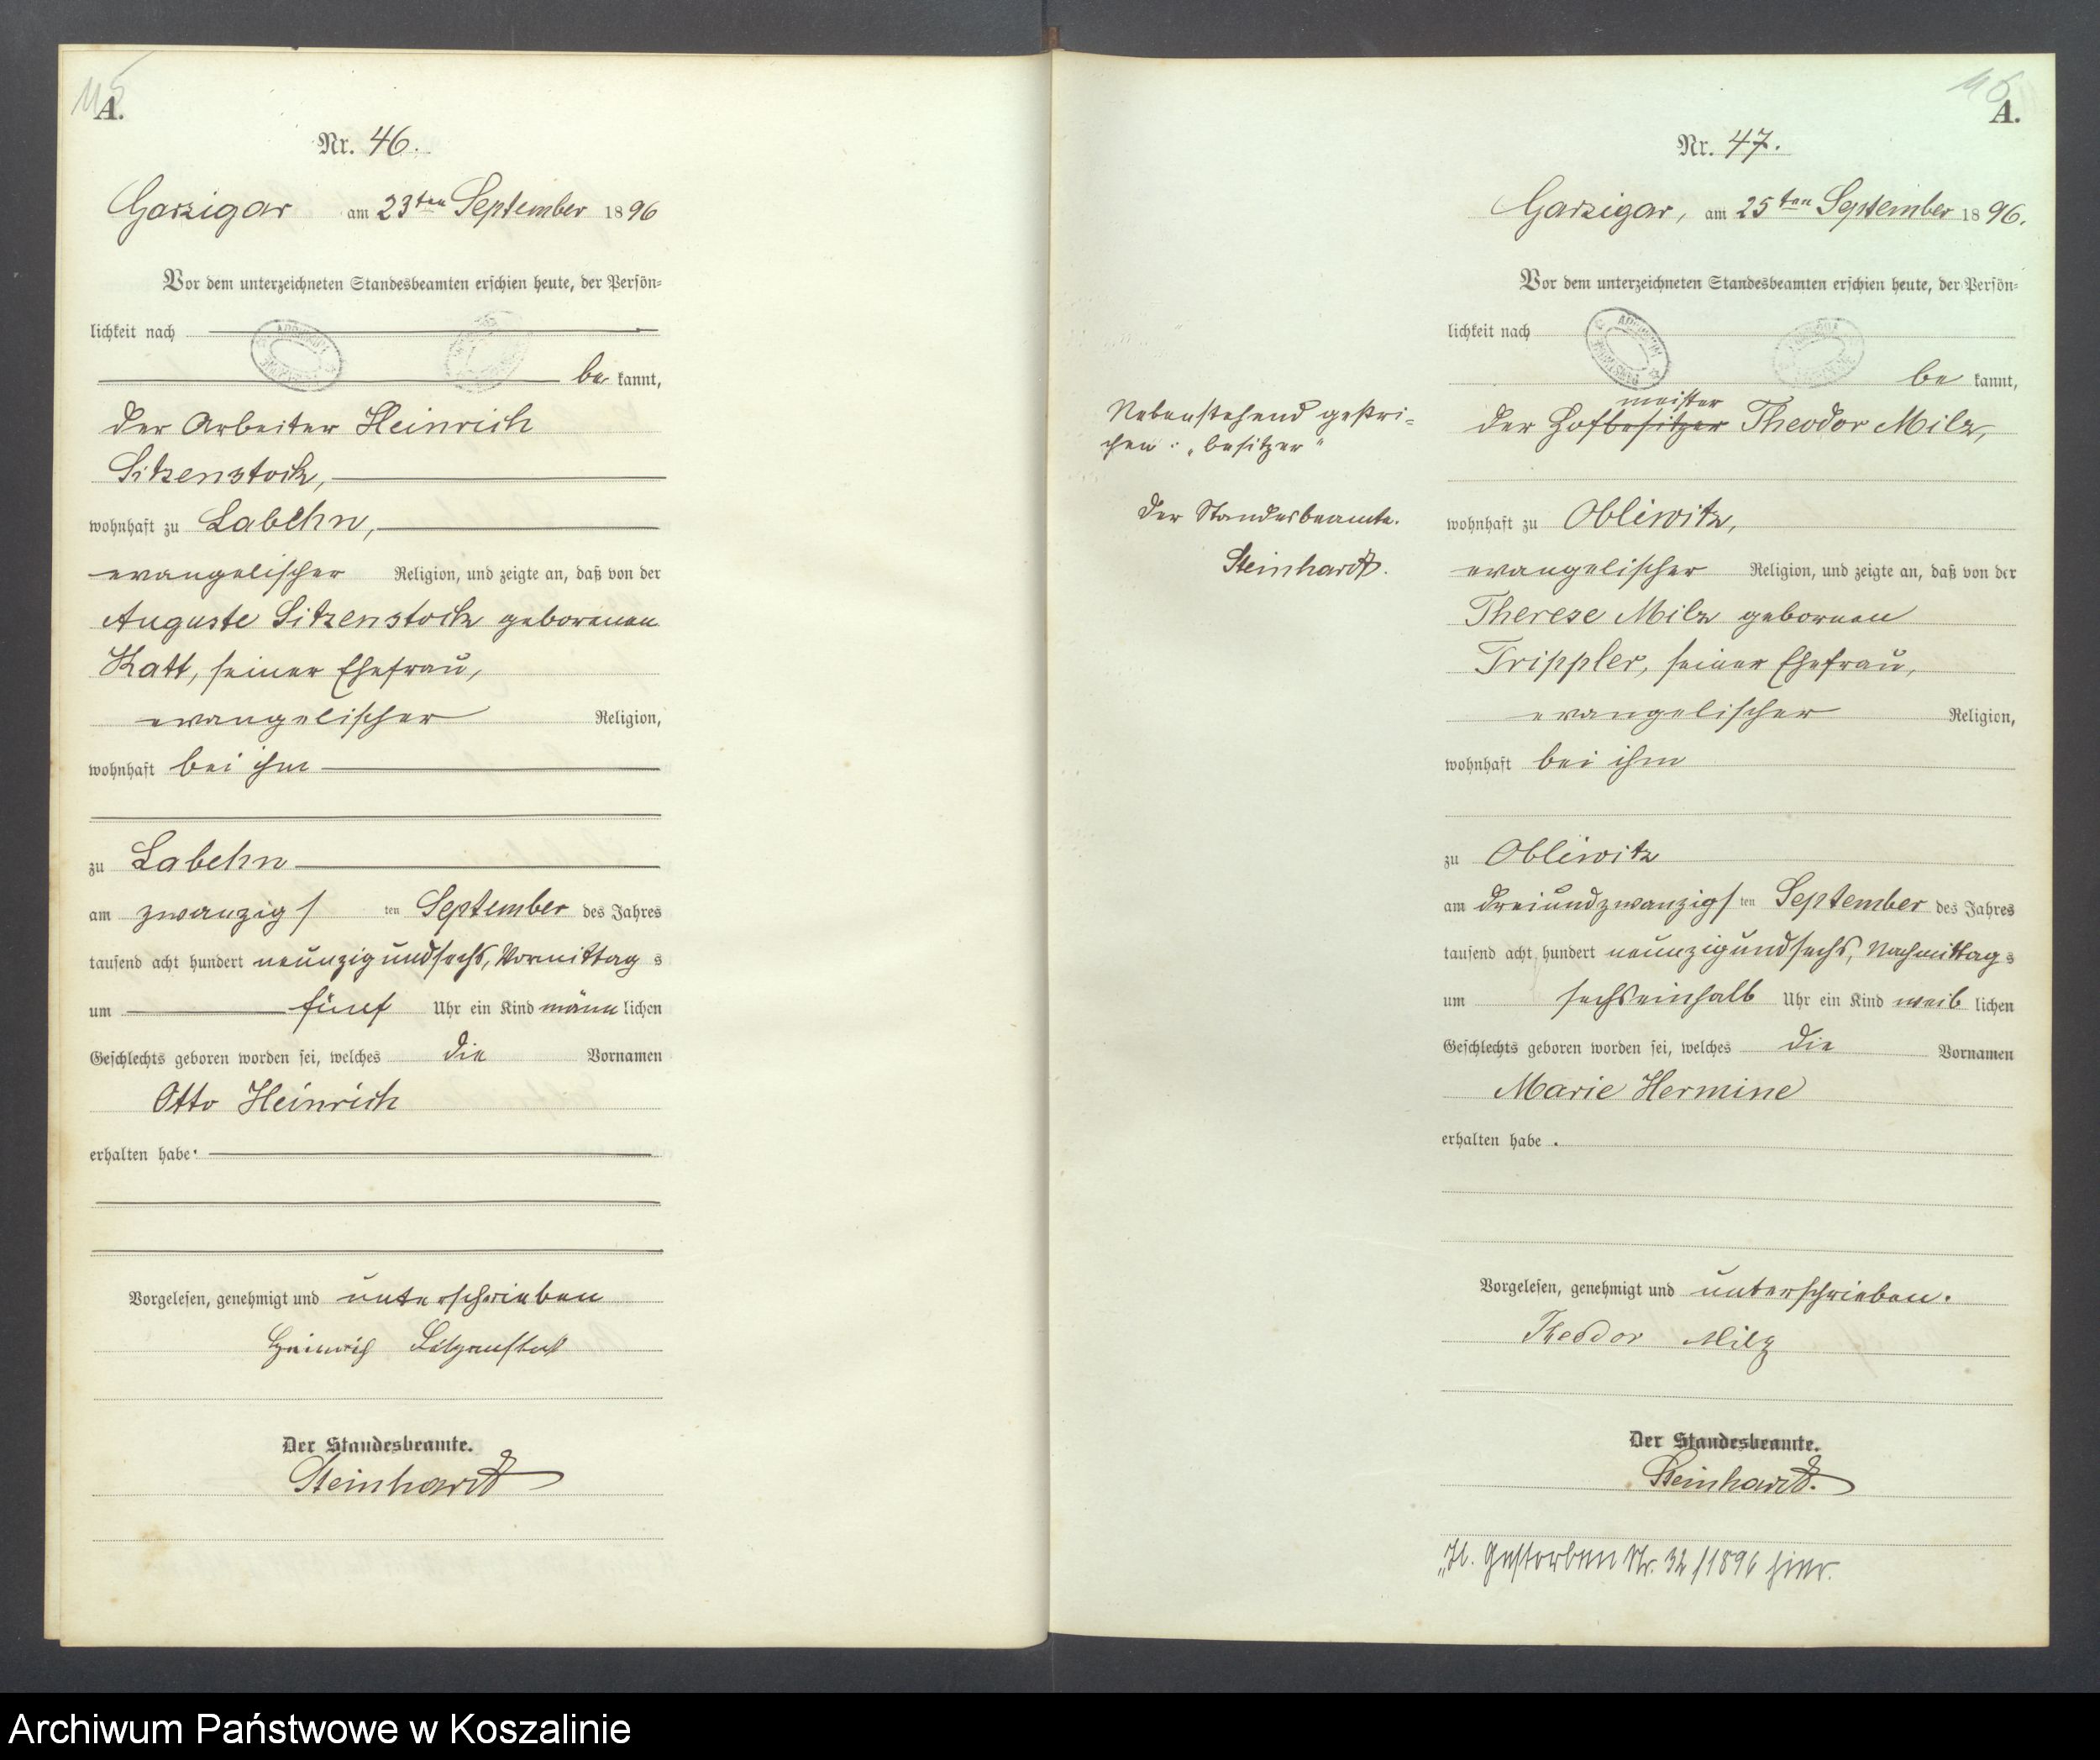 A.
Nr. 46.
Garzigar am 23ten September 1896
Vor dem unterzeichneten Standesbeamten erschien heute, der Persön-
lichkeit nach
be kannt,
der Arbeiter Heinrich
Sitzenstock,
wohnhaft zu Labehn,
evangelischer Religion, und zeigte an, daß von der
Auguste Sitzenstock geborenen
Katt, seiner Ehefrau,
evangelischer Religion,
wohnhaft bei ihm
zu Labehn
am zwanzigsten September des Jahres
tausend acht hundert neunzigundsechs, Vormittags
um fünf Uhr ein Kind männlichen
Geschlechts geboren worden sei, welches die Vornamen
Otto Heinrich
erhalten habe.
Vorgelesen, genehmigt und unterschrieben
Heinrich Sitzenstock
Der Standesbeamte.
Steinhardt
Nebenstehend gestri-
chen: „besitzer“
Der Standesbeamte.
Steinhardt.
A.
Nr. 47.
Garzigar, am 25ten September 1896.
Vor dem unterzeichneten Standesbeamten erschien heute, der Persön-
lichkeit nach
be kannt,
meister
der Hofbesitzer Theodor Milz,
wohnhaft zu Obliwitz,
evangelischer Religion, und zeigte an, daß von der
Therese Milz gebornen
Trippler, seiner Ehefrau,
evangelischer Religion,
wohnhaft bei ihm
zu Obliwitz
am dreiundzwanzigsten September des Jahres
tausend acht hundert neunzigundsechs, Nachmittags
um sechseinhalb Uhr ein Kind weiblichen
Geschlechts geboren worden sei, welches die Vornamen
Marie Hermine
erhalten habe.
Vorgelesen, genehmigt und unterschrieben.
Theodor Milz
Der Standesbeamte.
Steinhardt.
Gestorben Nr. 32/1896 hier.
Archiwum Państwowe w Koszalinie